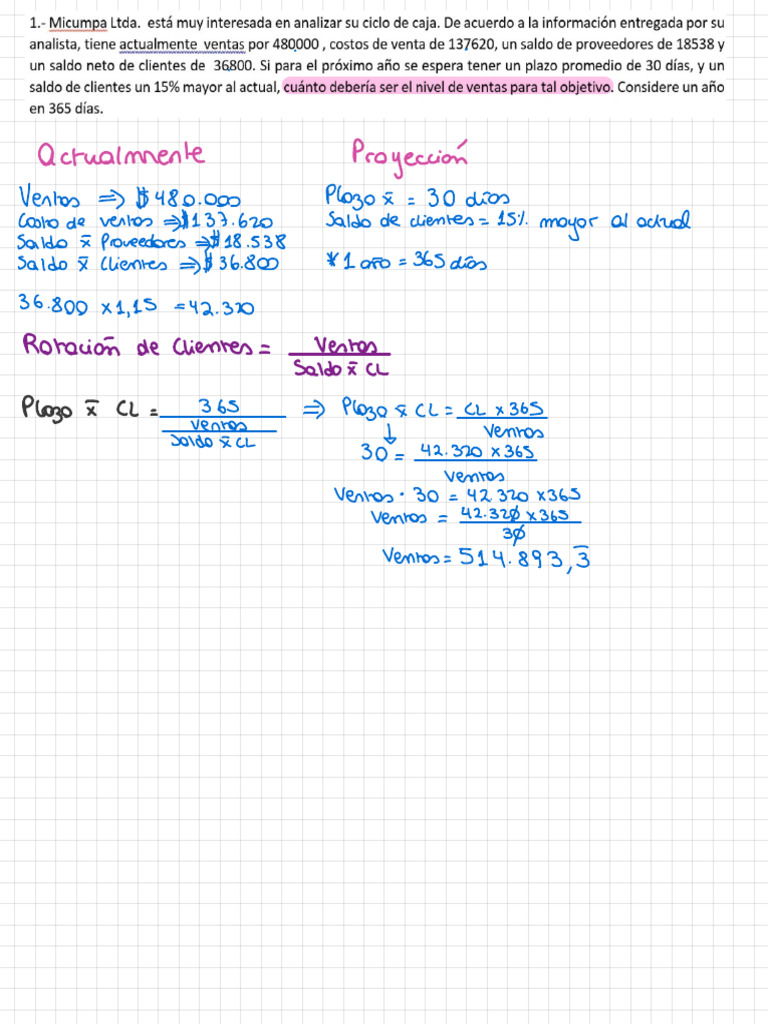 1.- Micumpa Ltda. está muy interesada en analizar su ciclo de caja. De acuerdo a la información entregada por su
analista, tiene actualmente ventas por 480,000 , costos de venta de 137620, un saldo de proveedores de 18538 y
un saldo neto de clientes de 36,800. Si para el próximo año se espera tener un plazo promedio de 30 días, y un
saldo de clientes un 15% mayor al actual, cuánto debería ser el nivel de ventas para tal objetivo. Considere un año
en 365 días.
Actualmente
Ventas ⇒ $480.000
Costo de ventas ⇒ $137.620
Saldo x̄ Proveedores ⇒ $18.538
Saldo x̄ Clientes ⇒ $36.800
Proyección
Plazo x̄ = 30 días
Saldo de clientes = 15% mayor al actual
* 1 año = 365 días
36.800 x 1,15 = 42.320
Rotación de Clientes = Ventas
Saldo x̄ CL
Plazo x̄ CL = 365
Ventas
Saldo x̄ CL
⇒ Plazo x̄ CL = CL x 365
Ventas
↓
30 = 42.320 x 365
Ventas
Ventas · 30 = 42.320 x 365
Ventas = 42.320 x 365
30
Ventas = 514.893,3̄